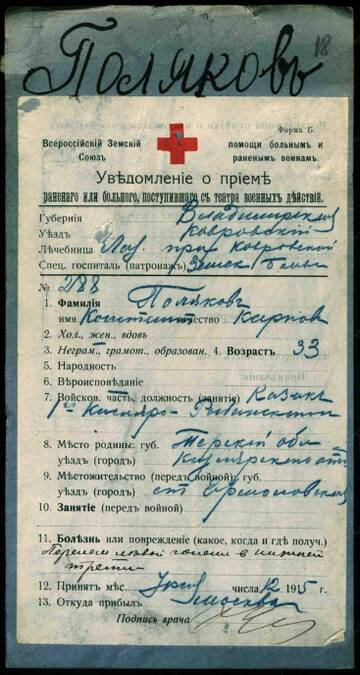 Поляковъ
18
Форма Б.
Всероссійскій Земскій
Союзъ
помощи больнымъ и
раненымъ воинамъ.
Увѣдомленіе о пріемѣ
раненаго или больного, поступившаго съ театра военныхъ дѣйствій.
Губернія Владимирская
Уѣздъ Ковровскій
Лѣчебница Лаз. при Ковровской
Спец. госпиталь (патронажъ) Земск.
№ 288
1. Фамилія Поляковъ
имя отчество Карпов
2. Хол., жен., вдовъ
3. Неграм., грамот., образован. 4. Возрастъ 33
5. Народность
6. Вѣроисповѣданіе
7. Войсков. часть, должность (занятіе) Казакъ
1го Кизляро-Гребенскаго
8. Мѣсто родины: губ. Терской обл
уѣздъ (городъ) Кизлярскаго от
9. Мѣстожительство (передъ войной): губ.
уѣздъ (городъ) ст.
10. Занятіе (передъ войной)
11. Болѣзнь или поврежденіе (какое, когда и гдѣ получ.)
Перелом левой голени в нижней
трети
12. Принятъ мѣс. числа 12, 1915 г.
13. Откуда прибылъ Москва
Подпись врача